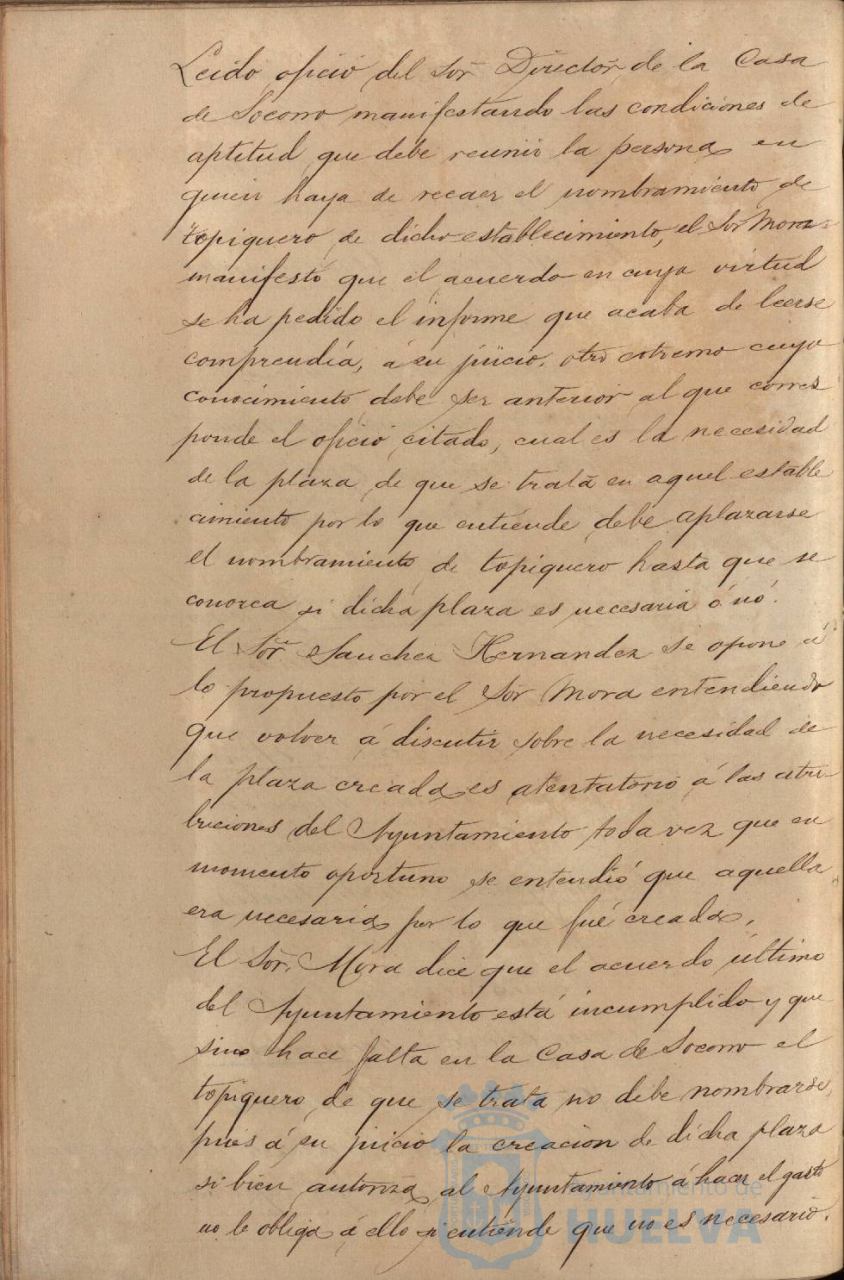 Leido oficio del Sor Director de la Casa
de Socorro manifestando las condiciones de
aptitud que debe reunir la persona en
quien haya de recaer el nombramiento de
topiquero de dicho establecimiento, el Sor Mora
manifestó que el acuerdo en cuya virtud
se ha pedido el informe que acaba de leerse
comprendía, á su juicio, otro estremo cuyo
conocimiento debe ser anterior al que corres
ponde el oficio citado, cual es la necesidad
de la plaza de que se trata en aquel estable
cimiento por lo que entiende debe aplazarse
el nombramiento de topiquero hasta que se
conozca si dicha plaza es necesaria ó nó.
El Sor Sanchez Hernandez se opone á
lo propuesto por el Sor Mora entendiendo
que volver á discutir sobre la necesidad de
la plaza creada es atentatorio á las atri
buciones del Ayuntamiento toda vez que en
momento oportuno se entendió que aquella
era necesaria por lo que fué creada.
El Sor. Mora dice que el acuerdo último
del Ayuntamiento está incumplido y que
sino hace falta en la Casa de Socorro el
topiquero de que se trata no debe nombrarse,
pues á su juicio la creacion de dicha plaza
si bien autoriza al Ayuntamiento á hacer el gasto
no le obliga á ello si entiende que no es necesario.
Ayuntamiento de
HUELVA